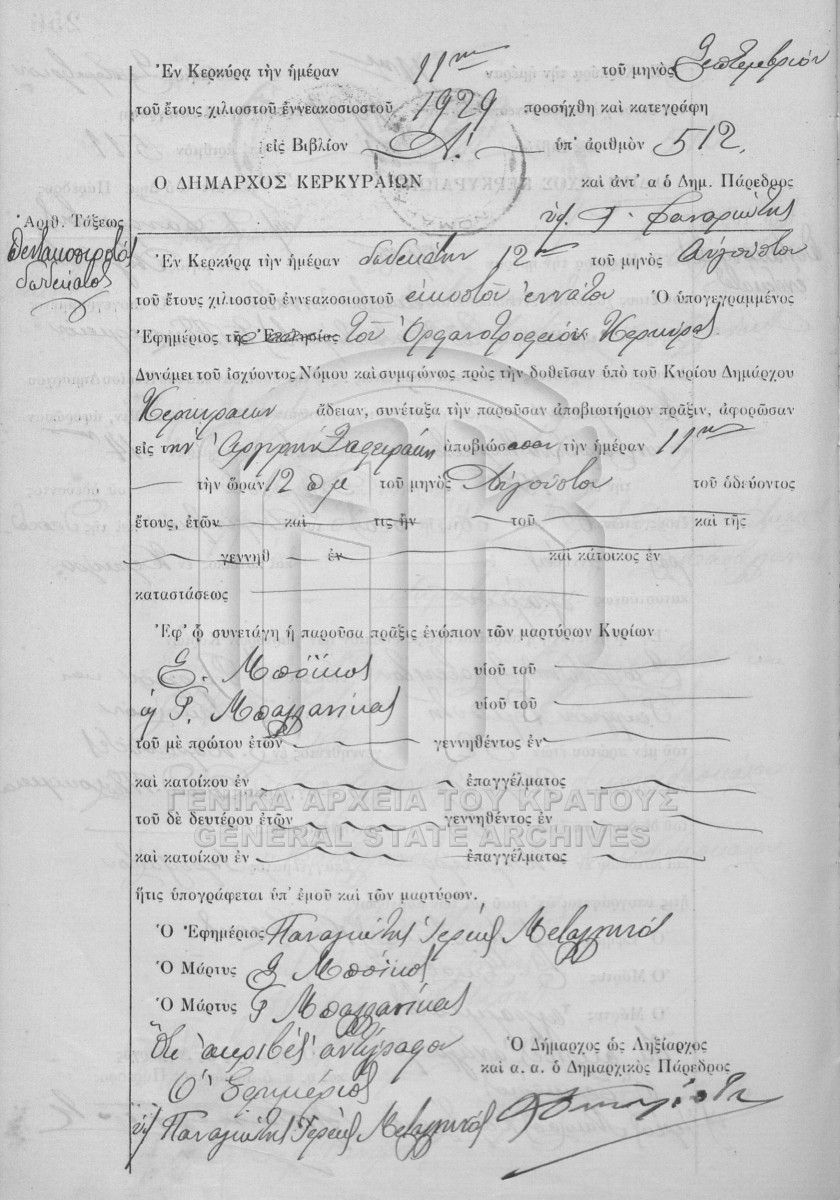 Ἐν Κερκύρᾳ τὴν ἡμέραν 11ην τοῦ μηνὸς Σεπτεμβρίου
τοῦ ἔτους χιλιοστοῦ ἐννεακοσιοστοῦ 1929 προσήχθη καὶ κατεγράφη
εἰς Βιβλίον Α! ὑπ' ἀριθμὸν 512,
Ο ΔΗΜΑΡΧΟΣ ΚΕΡΚΥΡΑΙΩΝ καὶ ἀντ' α ὁ Δημ. Πάρεδρος
Γ. Φαναριώτης
Ἀριθ. Τάξεως
Πεντακοσιοστὸς
δωδέκατος
Ἐν Κερκύρᾳ τὴν ἡμέραν δωδεκάτην 12ην τοῦ μηνὸς Αὐγούστου
τοῦ ἔτους χιλιοστοῦ ἐννεακοσιοστοῦ εἰκοστοῦ ἐννάτου Ὁ ὑπογεγραμμένος
Ἐφημέριος τῆς Ἐκκλησίας τοῦ Ὀρφανοτροφείου Κερκύρας
Δυνάμει τοῦ ἰσχύοντος Νόμου καὶ συμφώνως πρὸς τὴν δοθεῖσαν ὑπὸ τοῦ Κυρίου Δημάρχου
Κερκυραίων ἄδειαν, συνέταξα τὴν παροῦσαν ἀποβιωτήριον πρᾶξιν, ἀφορῶσαν
εἰς την ἀποβιώσασαν τὴν ἡμέραν 11ην
τὴν ὥραν 12 π μ τοῦ μηνὸς Αὐγούστου τοῦ ὁδεύοντος
ἔτους, ἐτῶν καὶ τις ἦν τοῦ καὶ τῆς
γεννηθ ἐν καὶ κάτοικος ἐν
καταστάσεως
Ἐφ' ᾧ συνετάγη ἡ παροῦσα πρᾶξις ἐνώπιον τῶν μαρτύρων Κυρίων
Σ. Μπόϊκος υἱοῦ τοῦ
Γ. Μπαλλανίκας υἱοῦ τοῦ
τοῦ μὲ πρώτου ἐτῶν γεννηθέντος ἐν
καὶ κατοίκου ἐν ἐπαγγέλματος
ΓΕΝΙΚΑ ΑΡΧΕΙΑ ΤΟΥ ΚΡΑΤΟΥΣ
τοῦ δὲ δευτέρου ἐτῶν γεννηθέντος ἐν
GENERAL STATE ARCHIVES
καὶ κατοίκου ἐν ἐπαγγέλματος
ἥτις ὑπογράφεται ὑπ' ἐμοῦ καὶ τῶν μαρτύρων.
Ὁ Ἐφημέριος Παναγιώτης Ἱερεὺς Μεταλληνός
Ὁ Μάρτυς Σ Μπόϊκος
Ὁ Μάρτυς Γ Μπαλλανίκας
Ὅτι ἀκριβὲς ἀντίγραφον
Ὁ Δήμαρχος ὡς Ληξίαρχος
καὶ α. α. ὁ Δημαρχικὸς Πάρεδρος
Ὁ Ἐφημέριος
Παναγιώτης Ἱερεὺς Μεταλληνός